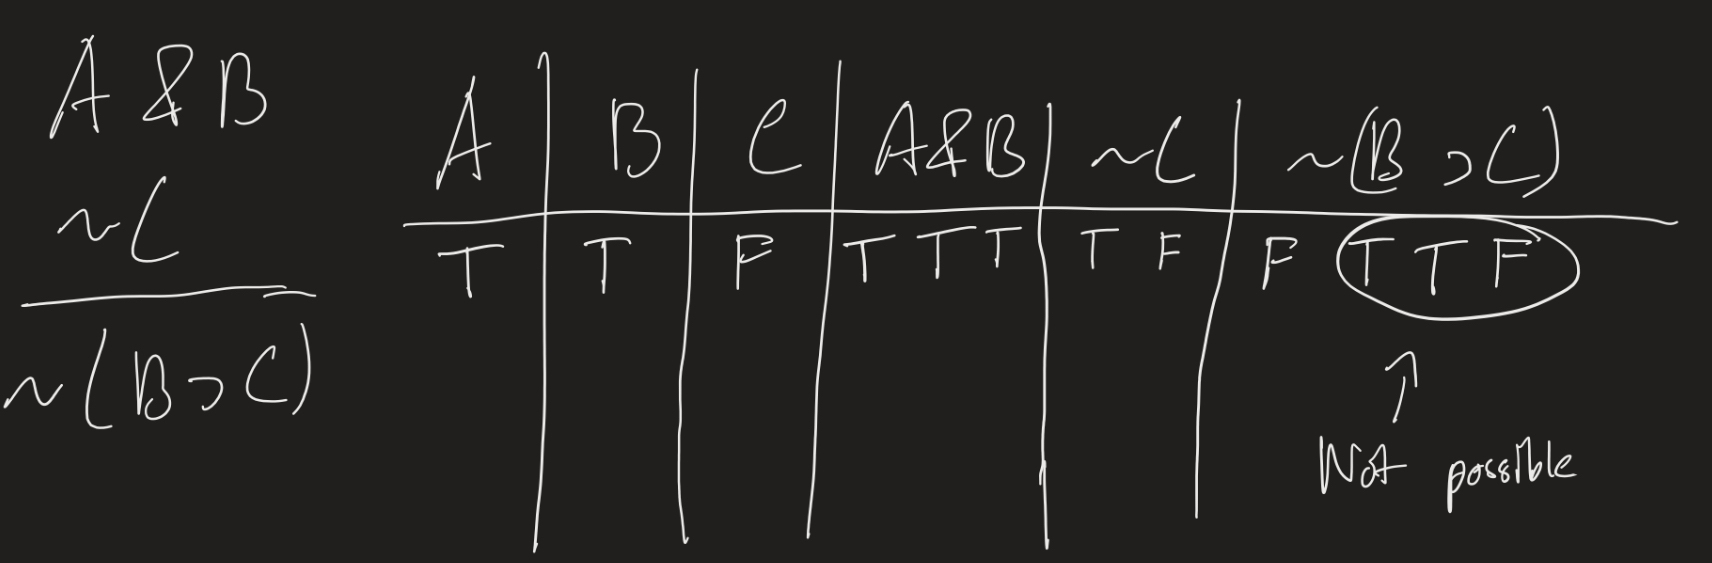 A & B
~C
~(B ⊃ C)
A B C A&B ~C ~(B ⊃ C)
T T F T T T T F F T T F
Not possible